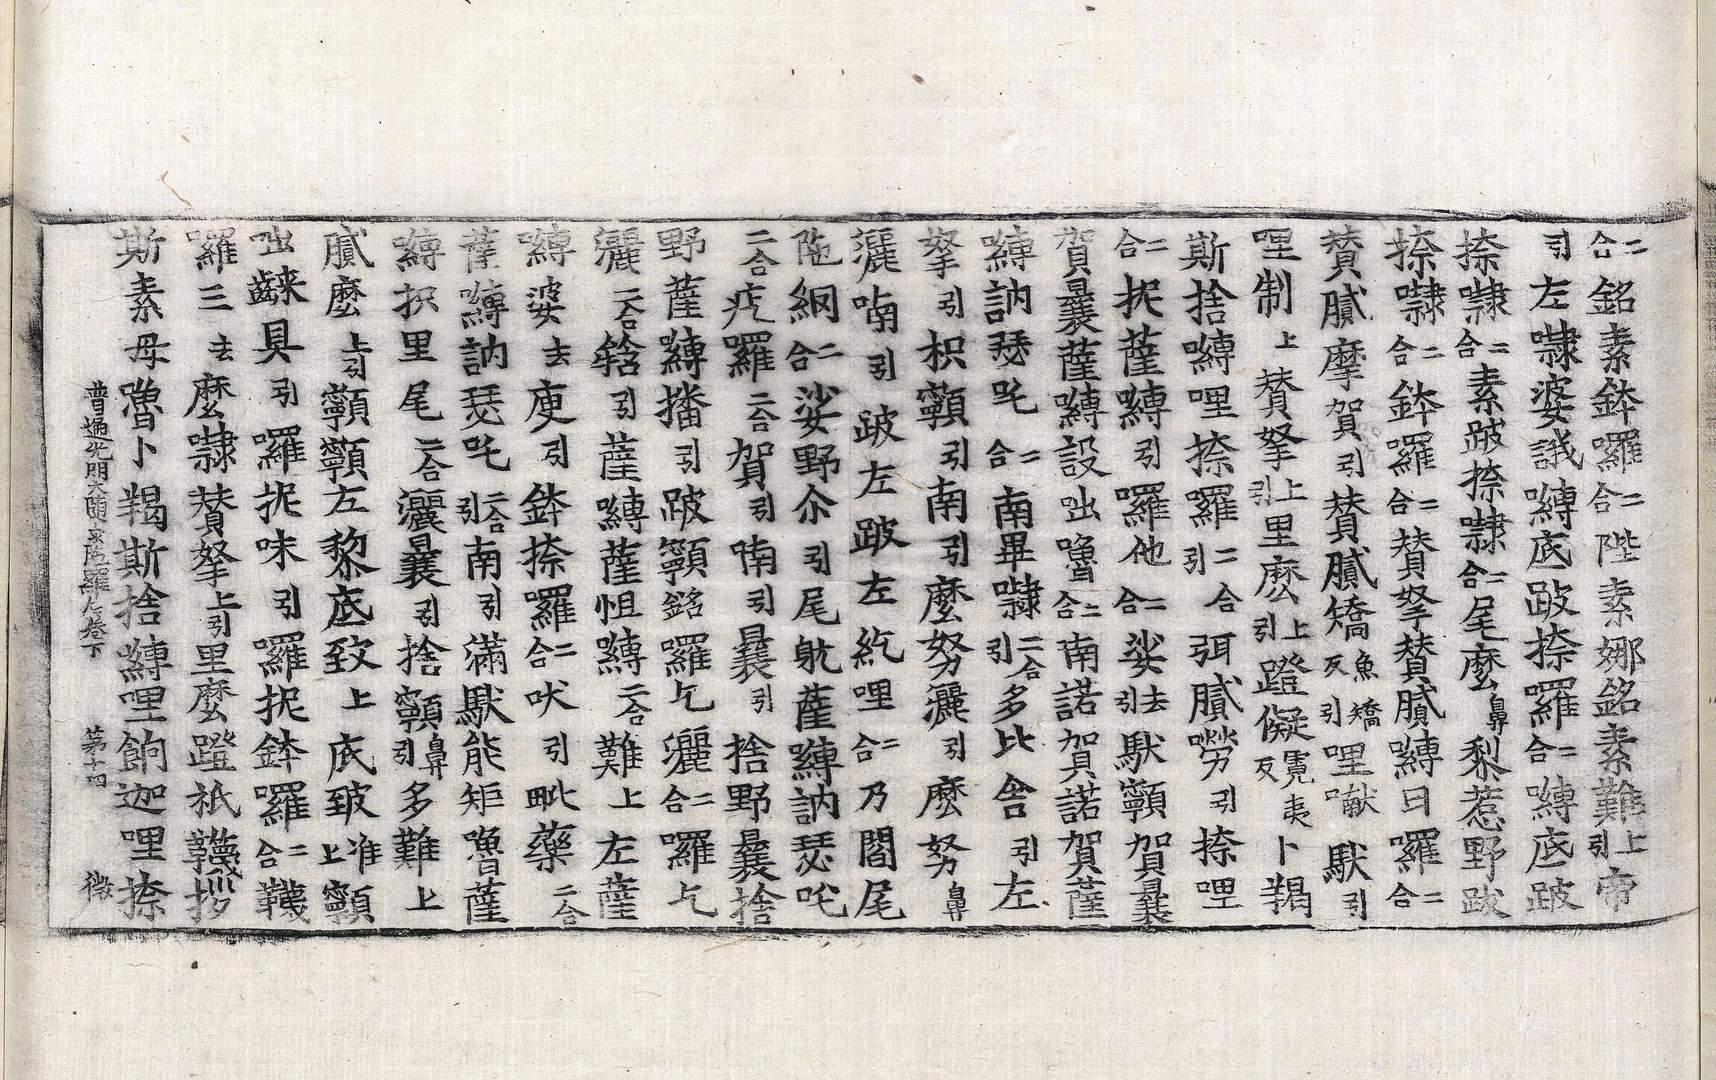 二合銘素鉢囉二合陛素娜銘素難上引帝
引左㘑婆誐嚩底跛捺囉二合嚩底跛
捺㘑二合素跛捺㘑二合尾麼鼻黎惹野跋
捺㘑二合鉢囉二合贊拏贊膩嚩日囉二合
贊膩摩賀引贊膩矯魚矯反引哩㘓馱引
哩制上贊拏上引里麼上引蹬儗霓夷反卜羯
斯捨嚩哩捺囉二合引弭膩嘮引捺哩
二合抳薩嚩引囉他二合娑去引馱顙賀曩
賀曩薩嚩設咄嚕二合南諾賀諾賀薩
嚩訥瑟吒二合南畢㘑二合引多比舍引左
拏引枳顙引南引麼努灑引麼努鼻
灑喃引跛左跛左紇哩二合乃閻尾
陁網二合娑野尒引尾躭薩嚩訥瑟吒
二合疙囉二合賀引喃引曩引捨野曩捨
野薩嚩播引跛顙銘囉乞灑二合囉乞
灑二合𤚥引薩嚩薩怛嚩二合難上左薩
嚩婆去庾引鉢捺囉二合吠引毗藥二合
薩嚩訥瑟吒二合引南引滿馱能矩嚕薩
嚩抧里尾二合灑曩引捨顙鼻引多難上
膩麼上引顙顙左黎底致上底致准上顙
咄𪘨具引囉抳味引囉抳鉢囉二合韈
囉三去麼㘑贊拏上引里麼蹬祇韈拶
斯素母嚕卜羯斯捨嚩哩餉迦哩捺
普遍光明大隨求陁羅尼卷下 第十四 微